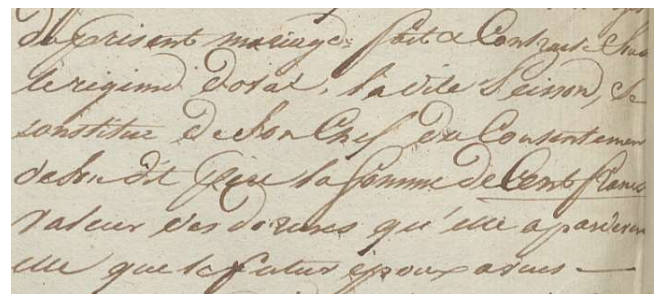 du présent mariage fait & Contracté Sous
le régime dotal, la dite Peisson, Se
constitue de Son Chef du Consentement
de Son dit père la Somme de Cent francs
valeur des dorures qu'elle a pardevers
elle que le futur époux a vues —